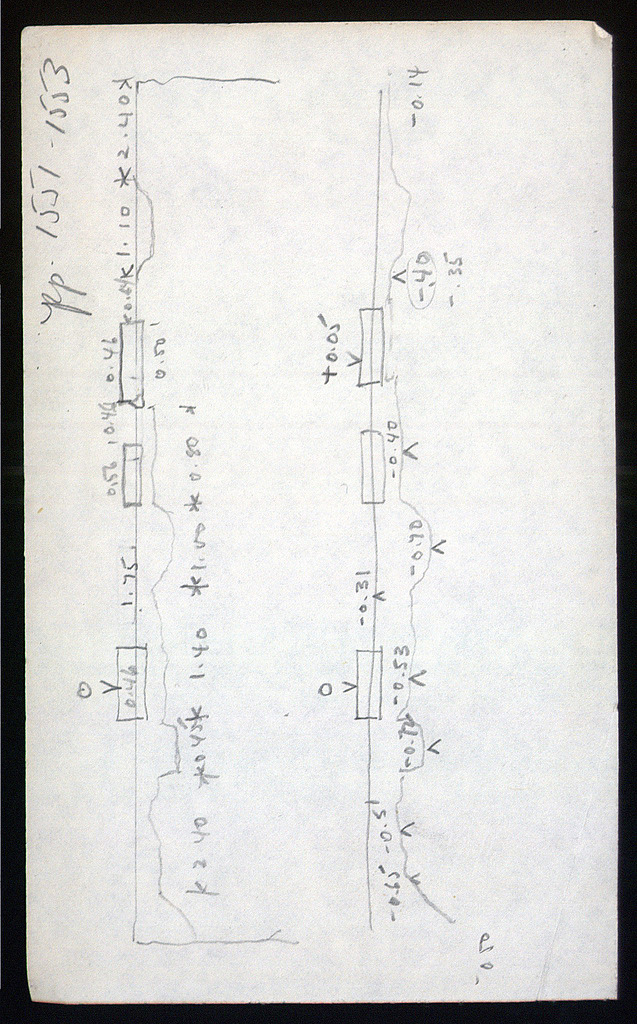 pp. 1551-1553
0
0.46
1.75
0.56
0.46
0.46
0.50
1.10
2.40
2.40
0.45
1.40
1.00
0.80
0
+0.05
-0.31
-0.65
-0.51
-0.72
-0.53
-0.70
-0.40
-.40
-.35
-0.14
-0.50